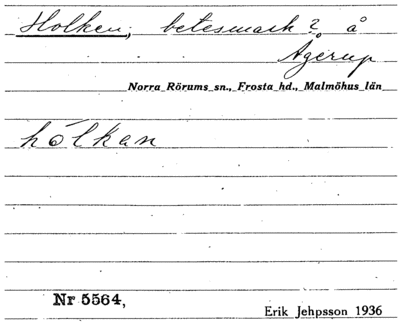 Holken, betesmark? å
Agerup
Norra Rörums sn., Frosta hd., Malmöhus län
hólkan
Nr 5564,
Erik Jehpsson 1936